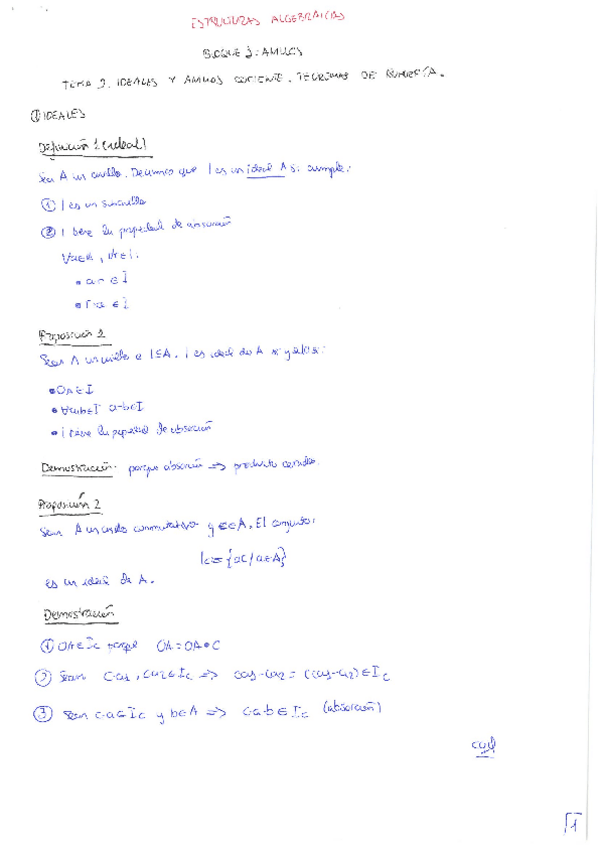 ESTRUCTURAS ALGEBRAICAS
BLOQUE 3: ANILLOS
TEMA 2. IDEALES Y ANILLOS COCIENTE. TEOREMAS DE ISOMORFÍA.
① IDEALES
Definición 1 (ideal)
Sea A un anillo. Decimos que I es un ideal A si cumple:
① I es un subanillo
② I tiene la propiedad de absorción
∀a∈A, ∀r∈I:
• a·r ∈ I
• r·a ∈ I
Proposición 1
Sean A un anillo e I⊆A. I es ideal de A si y sólo si:
• 0A∈I
• ∀a,b∈I a-b∈I
• I tiene la propiedad de absorción
Demostración: porque absorción => producto cerrado.
Proposición 2
Sean A un anillo conmutativo y c∈A. El conjunto:
Ic={ac/a∈A}
es un ideal de A.
Demostración
① 0A∈Ic porque 0A=0A•C
② Sean c·a1, c·a2∈Ic => ca1-ca2 = c(a1-a2)∈Ic
③ Sean c·a∈Ic y b∈A => c·a·b∈Ic (absorción)
cqd
1